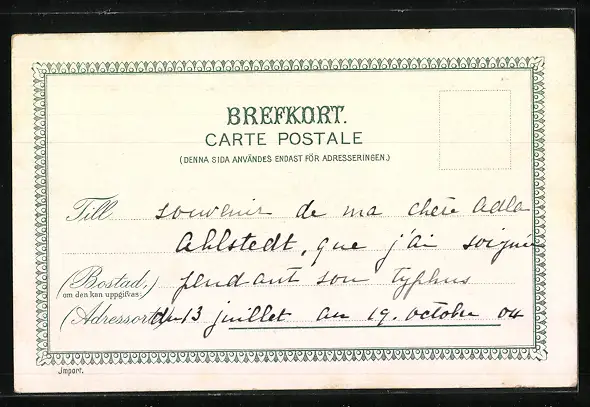 BREFKORT.
CARTE POSTALE
(DENNA SIDA ANVÄNDES ENDAST FÖR ADRESSERINGEN.)
Till souvenir de ma chère Adla
Ahlstedt, que j'ai soignée
(Bostad,) pendant son typhus
om den kan uppgifvas:
(Adressort) du 13 juillet au 19. octobre 04
Import.